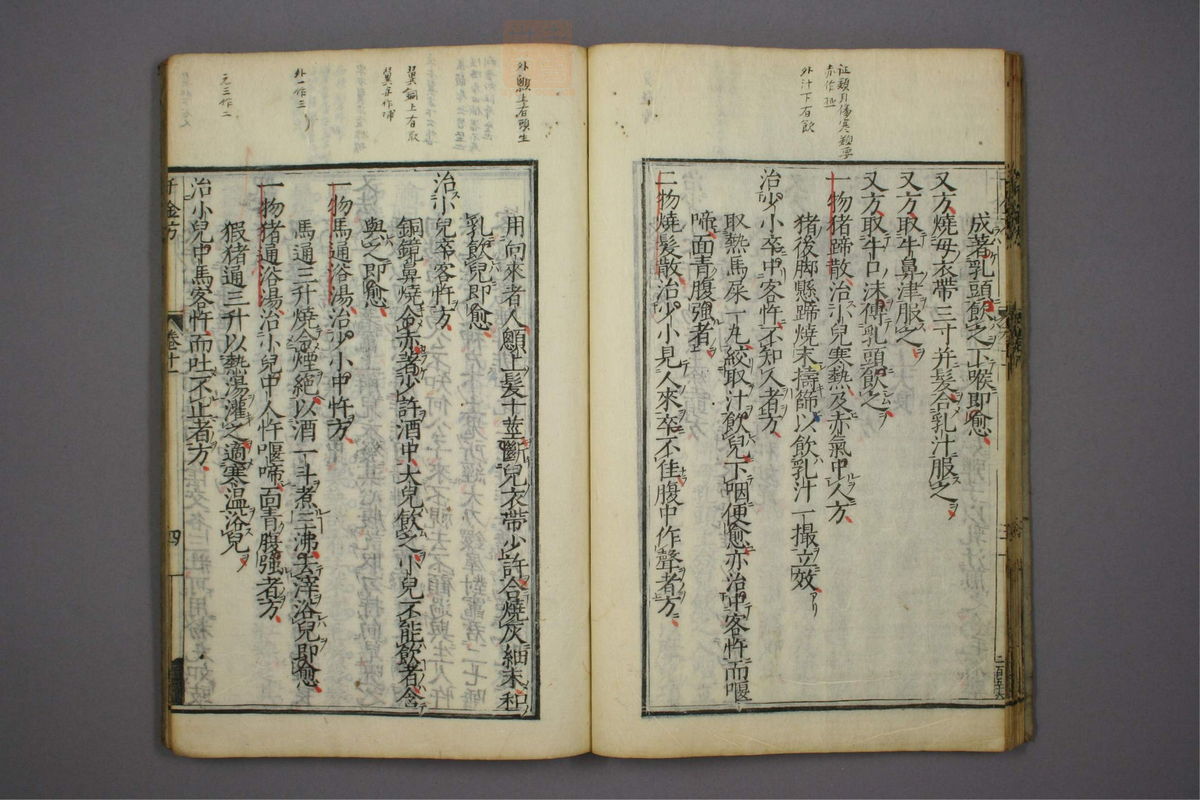 成著乳頭飲之下喉即愈
又方燒母衣帶三寸并髮合乳汁服之
又方取牛鼻津服之
又方取牛口沫傅乳頭飲之
一物猪蹄散治小兒寒熱及赤氣中人方
猪後脚懸蹄燒末擣篩以飲乳汁一撮立效
治少小卒中客忤不知人者方
取熱馬屎一丸絞取汁飲兒下咽便愈亦治中客忤而㖶
啼面青腹强者
二物燒髮散治少小見人來卒不佳腹中作聲者方
外汁下有飲
二百五十六
用向來者人顖上髮十莖斷兒衣帶少許合燒灰細末和
乳飲兒即愈
治小兒卒客忤方
銅鏡鼻燒令赤著少許酒中大兒飲之小兒不能飲者含
與之即愈
一物馬通浴湯治少小中忤方
馬通三升燒令煙絕以酒一斗煮三沸去滓浴兒即愈
一物猪通浴湯治小兒中人忤㖶啼面青腹强者方
猳猪通三升以熱湯灌之適寒温浴兒
治小兒中馬客忤而吐不止者方
千金方 卷十一 四
外顖上有頭生
翼銅上有取
外一作三
元三作二